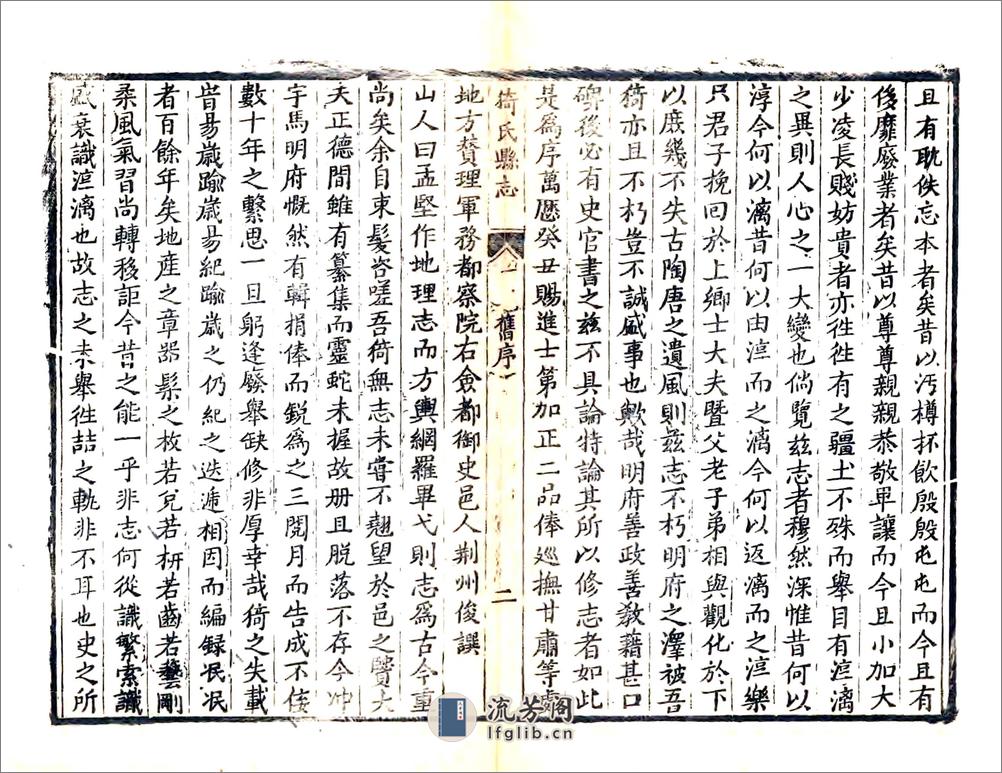 且有耽佚忘本者矣昔以汚樽抔飲殷殷屯屯而今且有
後靡廢業者矣昔以尊尊親親恭敬卑讓而今且小加大
少凌長賤妨貴者亦徃徃有之疆土不殊而舉目有淳漓
之異則人心之一大變也倘覽茲志者穆然深惟昔何以
淳今何以漓昔何以由淳而之漓今何以返漓而之淳樂
只君子挽回於上鄉士大夫暨父老子弟相與觀化於下
以庶幾不失古陶唐之遺風則茲志不朽明府之澤被吾
猗亦且不朽豈不誠盛事也歟哉明府善政善敎藉甚口
碑後必有史官書之茲不具論特論其所以修志者如此
是爲序萬曆癸丑賜進士第加正二品俸廵撫甘肅等處
猗氏縣志
舊序
二
地方贊理軍務都察院右僉都御史邑人荆州俊譔
山人曰孟堅作地理志而方輿綱羅畢弋則志爲古今重
尚矣余自束髮咨嗟吾猗無志未甞不翹望於邑之賢大
夫正德間雖有纂集而靈蛇未握故册且脱落不存今冲
宇馬明府慨然有輯捐俸而鋭爲之三閱月而告成不侫
數十年之繫思一旦躬逢廢舉缺修非厚幸哉猗之失載
昔昜歲踰歲昜紀踰歲之仍紀之迭遁相因而編録泯泯
者百餘年矣地産之章器髹之枚若兌若枅若齒若藝剛
柔風氣習尚轉移詎今昔之能一乎非志何從識繁索識
盛衰識淳漓也故志之未舉徃喆之軌非不耳也史之所
流芳閣
lfglib.cn